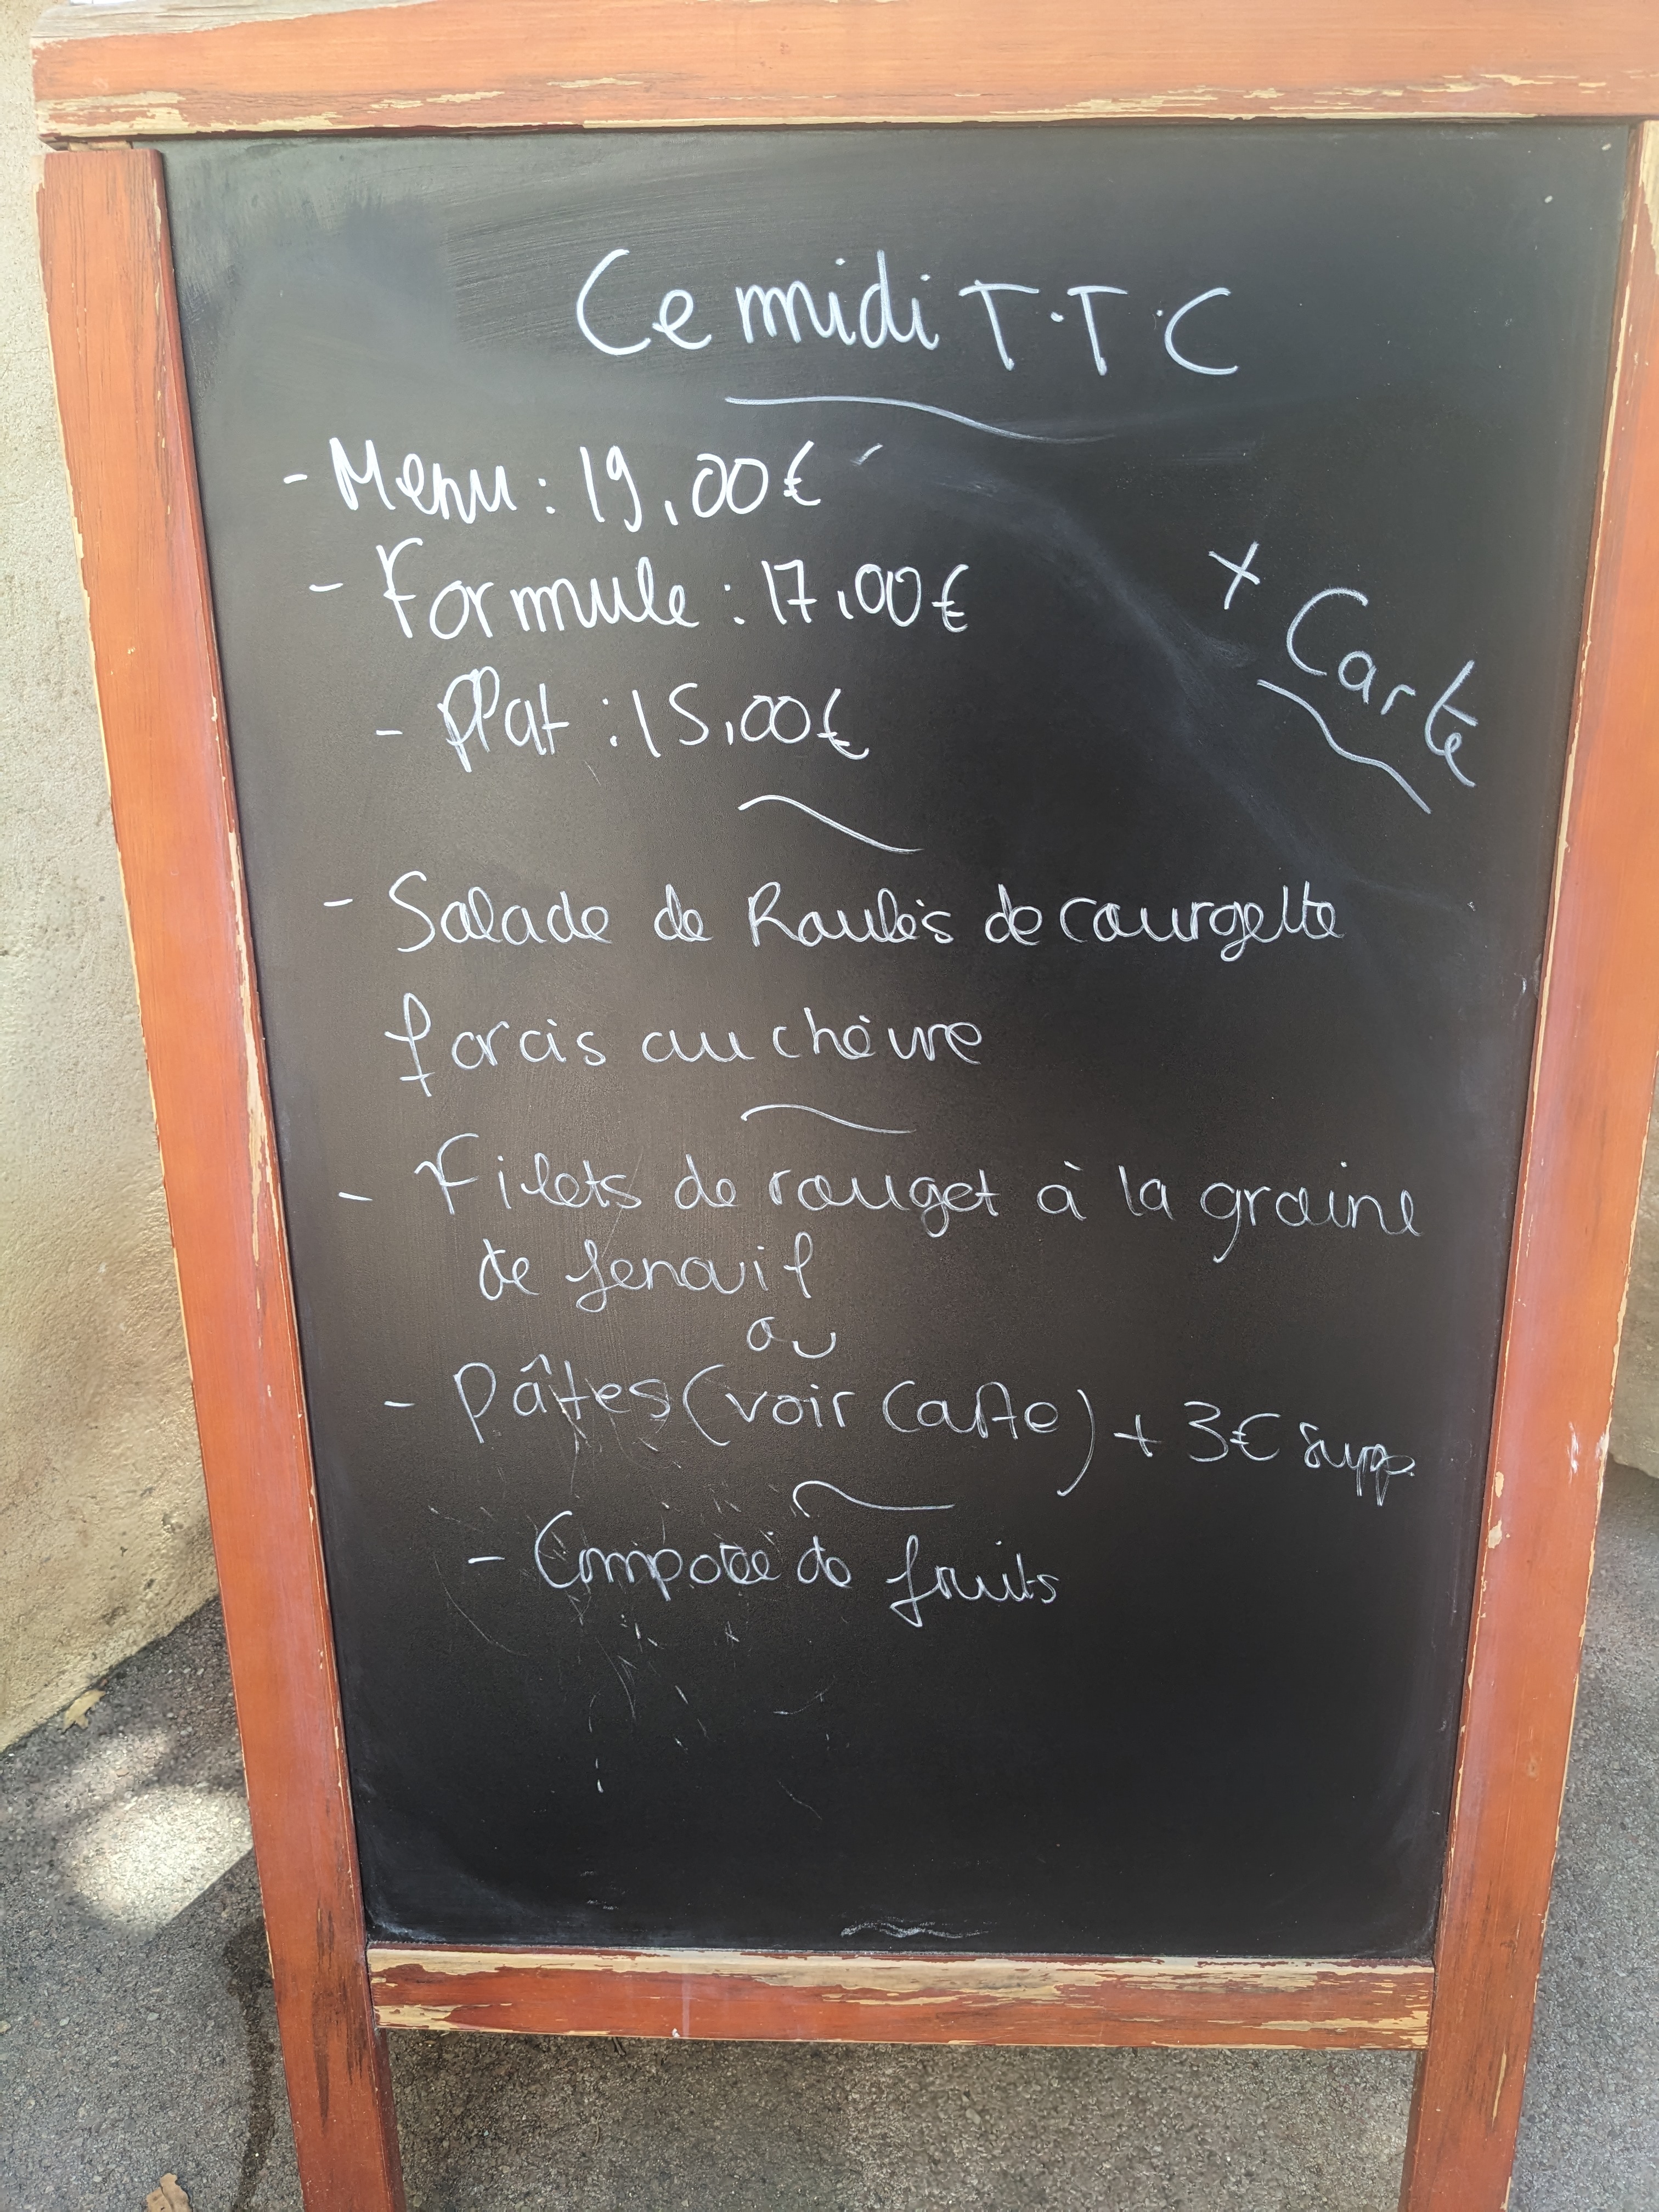 Ce midi T.T.C
- Menu : 19,00€
- Formule : 17,00€
- Plat : 15,00€
+ Carte
- Salade de Roulés de courgette
farcis au chèvre
- Filets de rouget à la graine
de fenouil
ou
- Pâtes (voir Carte) + 3€ supp.
- Compotée de fruits